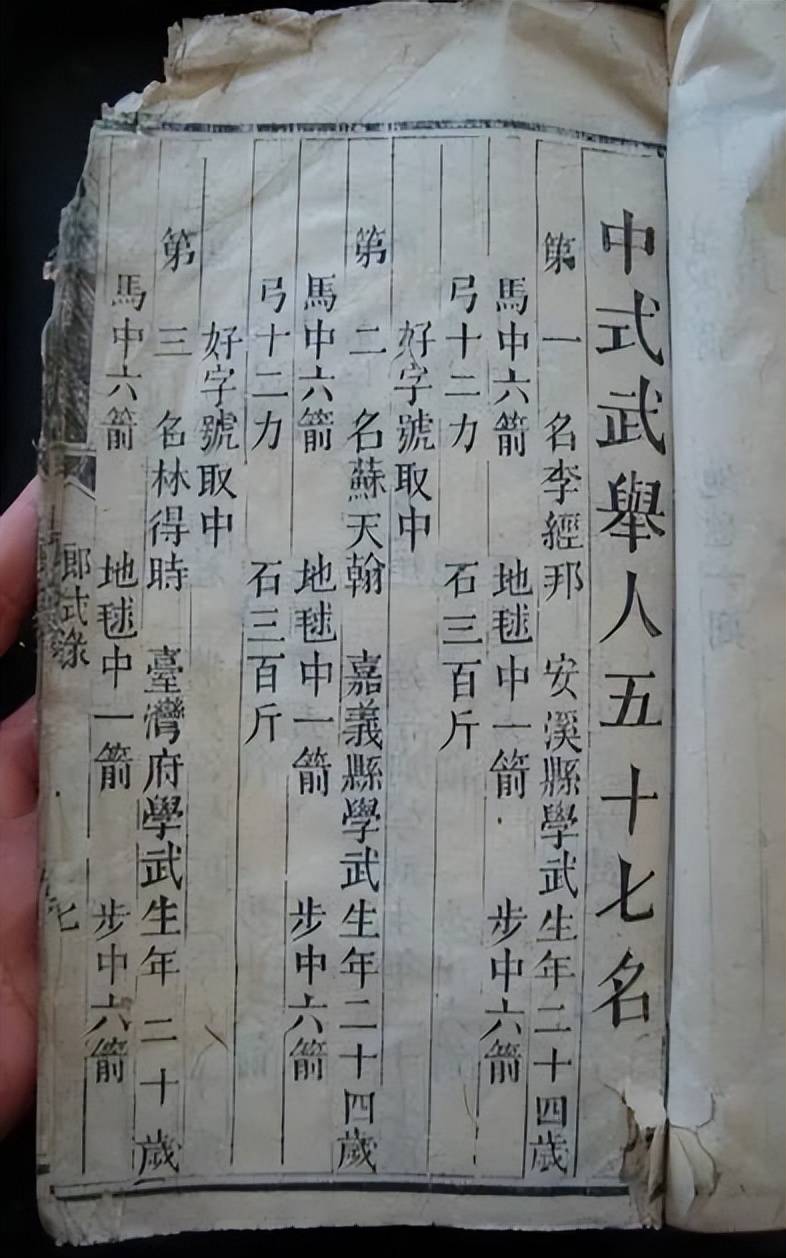 中式武舉人五十七名
第一名李經邦 安溪縣學武生年二十四歲
馬中六箭 地毬中一箭 步中六箭
弓十二力 石三百斤
好字號取中
第二名蘇天翰 嘉義縣學武生年二十四歲
馬中六箭 地毬中一箭 步中六箭
弓十二力 石三百斤
好字號取中
第三名林得時 臺灣府學武生年二十歲
馬中六箭 地毬中一箭 步中六箭
式錄 七